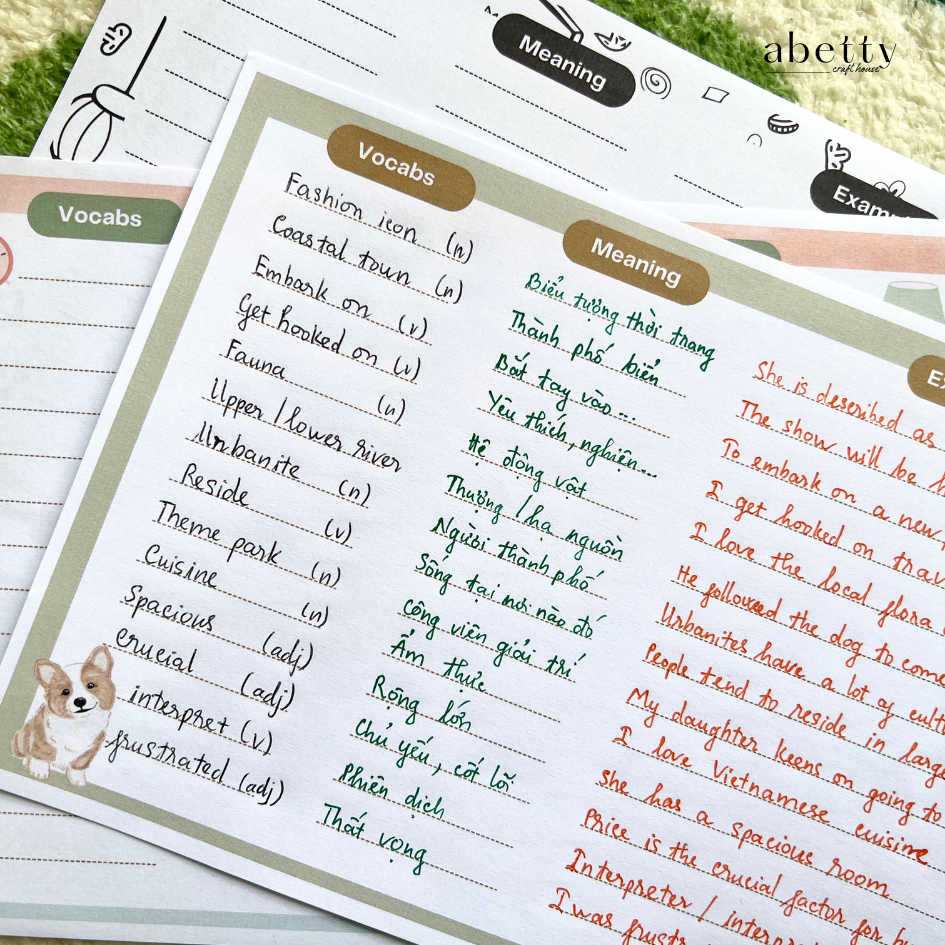 abetty
craft house
Meaning
Vocabs
Vocabs
Meaning
Fashion icon (n)
Coastal town (n)
Embark on (v)
Get hooked on (v)
Fauna (n)
Upper / lower river
Urbanite (n)
Reside (v)
Theme park (n)
Cuisine (n)
Spacious (adj)
crucial (adj)
interpret (v)
frustrated (adj)
Biểu tượng thời trang
Thành phố biển
Bắt tay vào...
Yêu thích, nghiên...
Hệ động vật
Thượng / hạ nguồn
Người thành phố
Sống tại nơi nào đó
công viên giải trí
Ẩm thực
Rộng lớn
Chủ yếu, cốt lõi
Phiên dịch
Thất vọng
She is described as
The show will be
To embark on a new
I get hooked on
I love the local flora
He followed the dog to
Urbanites have a lot of
People tend to reside in
My daughter keens on going to
I love Vietnamese cuisine
She has a spacious room
Price is the crucial factor for
Interpreter /
I was